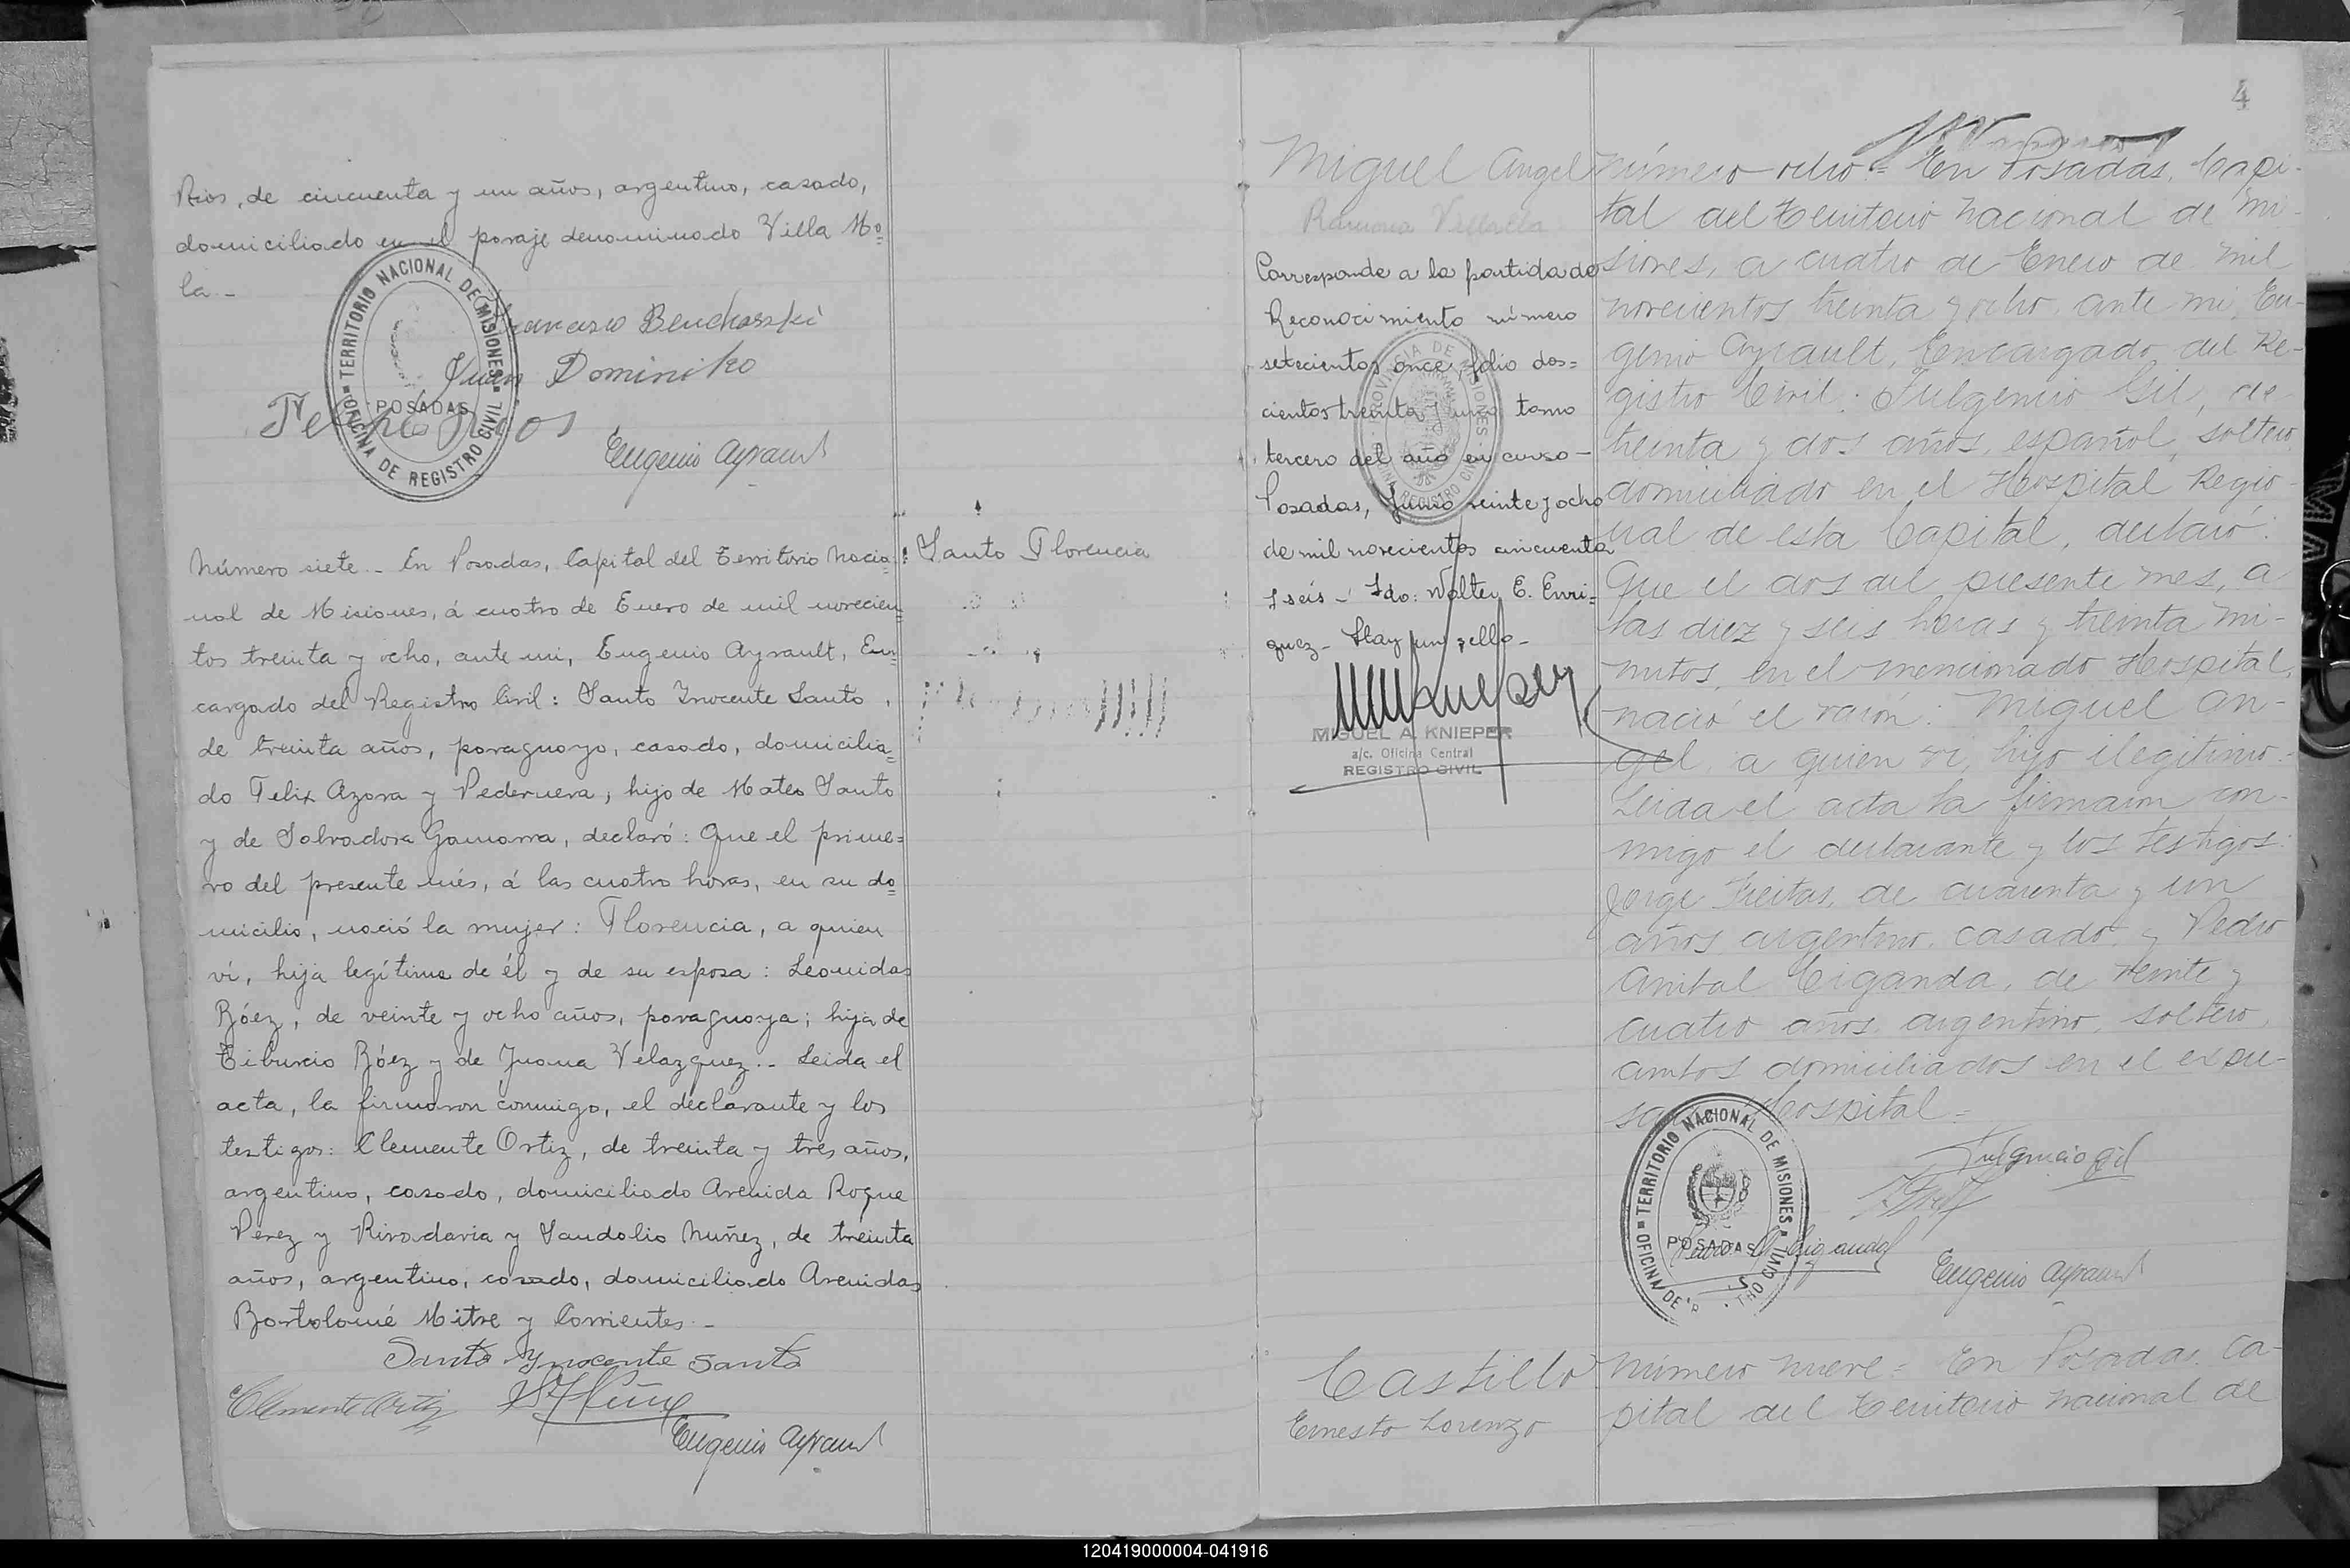 Rios, de cincuenta y un años, argentino, casado,
domiciliado en el paraje denominado Villa Mo=
la.-
TERRITORIO NACIONAL DE MISIONES
POSADAS
OFICINA DE REGISTRO CIVIL
Francisco Bencharski
Juan Dominiko
Eugenio Ayrault
Número siete.- En Posadas, Capital del Territorio Nacio=
nal de Misiones, á cuatro de Enero de mil novecien=
tos treinta y ocho, ante mi, Eugenio Ayrault, En=
cargado del Registro Civil: Santo Inocente Santo,
de treinta años, paraguayo, casado, domicilia=
do Felix Azara y Pedernera, hijo de Mateo Santo
y de Salvadora Gamarra, declaró: Que el prime=
ro del presente més, á las cuatro horas, en su do=
micilio, nació la mujer: Florencia, a quien
ví, hija legítima de él y de su esposa: Leonidas
Báez, de veinte y ocho años, paraguaya; hija de
Tiburcio Báez y de Juana Velazquez.- Leida el
acta, la firmaron conmigo, el declarante y los
testigos: Clemente Ortiz, de treinta y tres años,
argentino, casado, domiciliado Avenida Roque
Perez y Rivadavia y Sandalio Nuñez, de treinta
años, argentino, casado, domiciliado Avenidas
Bartolomé Mitre y Corrientes.-
Santo Ynocente Santo
Clemente Ortiz
Eugenio Ayrault
Santo Florencia
4
Miguel Angel
Ramona Villalla
Corresponde a la partida de
Reconocimiento número
setecientos once, folio dos=
cientos treinta y uno, tomo
tercero del año en curso-
Posadas, Junio veinte y ocho
de mil novecientos cincuenta
y seis - Fdo: Walter E. Enri=
quez- Hay un sello-
MIGUEL A. KNIEPER
a/c. Oficina Central
REGISTRO CIVIL
Número ocho = En Posadas, Capi-
tal del Territorio Nacional de Mi-
siones, a cuatro de Enero de mil
novecientos treinta y ocho, ante mi, Eu-
genio Ayrault, Encargado del Re-
gistro Civil: Fulgencio Gil, de
treinta y dos años, español, soltero
domiciliado en el Hospital Regio-
nal de esta Capital, declaró:
Que el dos del presente mes, a
las diez y seis horas y treinta mi-
nutos, en el mencionado Hospital,
nació el varón: Miguel An-
gel, a quien ví, hijo ilegítimo.-
Leida el acta la firmaron con-
migo el declarante y los testigos:
Jorge Freitas, de cuarenta y un
años, argentino, casado, y Pedro
Anibal Ciganda, de veinte y
cuatro años, argentino, soltero,
ambos domiciliados en el expre-
sado Hospital =
TERRITORIO NACIONAL DE MISIONES
POSADAS
Fulgencio Gil
Eugenio Ayrault
Castillo
Ernesto Lorenzo
Número nueve = En Posadas, Ca-
pital del Territorio Nacional de
120419000004-041916